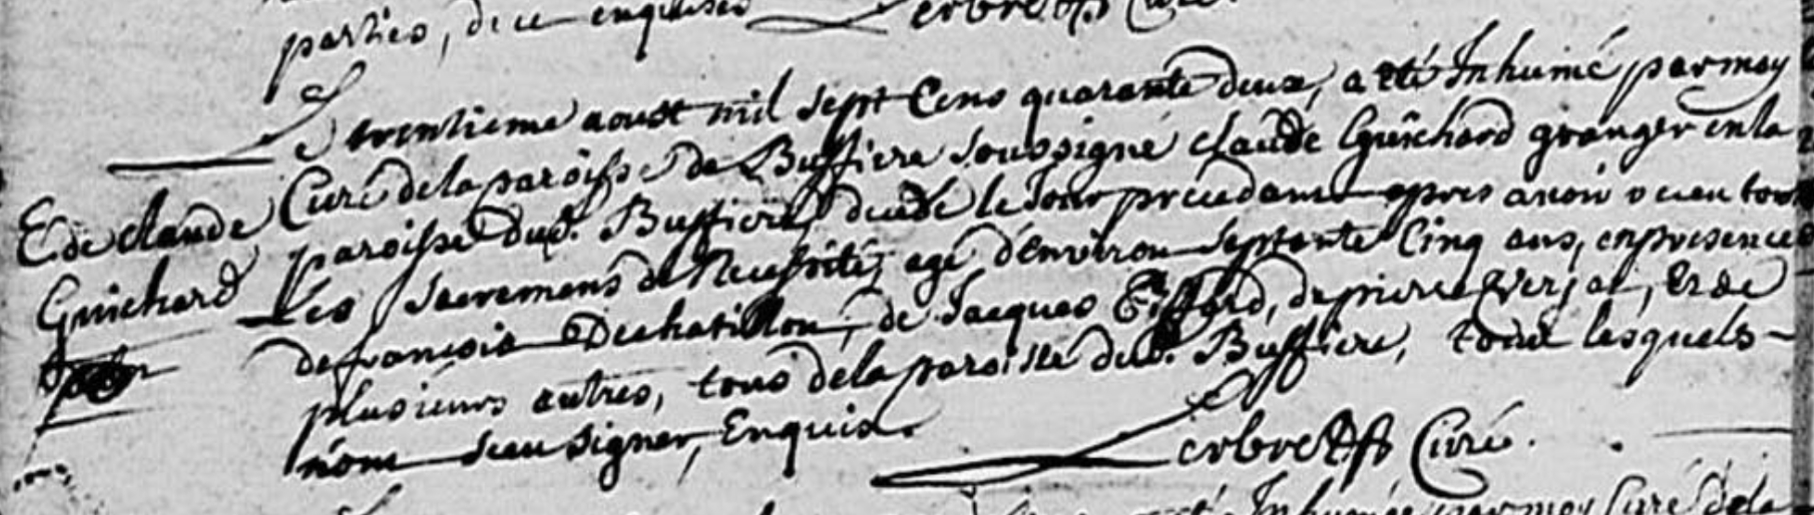 parties, de ce enquises
Curé.
Le trentieme aoust mil sept Cens quarante deux, a été Inhumé par moy
Curé de la paroisse de Bussiere soussigné Claude Guichard granger en la
paroisse dud. Bussiere, decedé le Jour precedant apres avoir receu tous
Les Sacremens de Necessité, agé d'environ septante Cinq ans, en presence
de francois Dechatillon, de Jacques de pierre Verjat, Et de
plusieurs autres, tous de la paroisse dud. Bussiere, tous lesquels
n'ont sceu signer, Enquis.
Curé.
E de Claude
Guichard
Inhumée par moy Curé de la